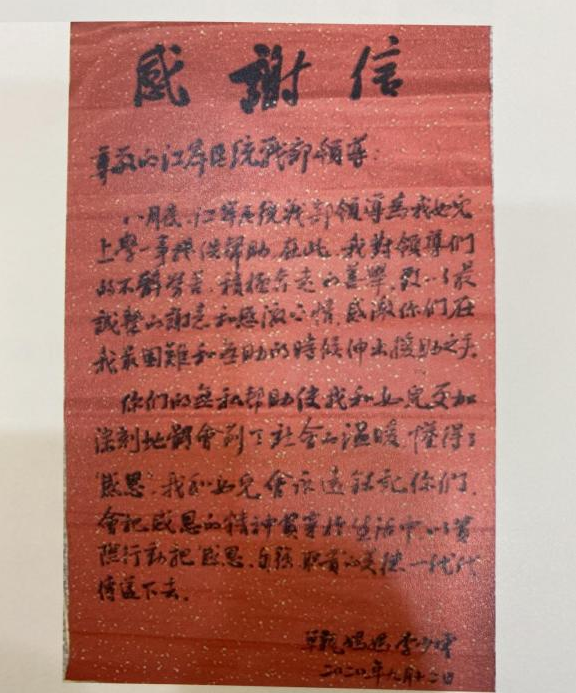 感謝信
尊敬的江岸区统战部领导:
八月底,江岸区统战部领導為我女兒
上學一事提供幫助,在此,我對領導們
的不辭勞苦、積極奔走的善舉,致以最
誠摯的謝意和感激心情,感激你們在
我最困難和無助的時候伸出援助之手。
你们的無私幇助使我和女兒更加
深刻地體會到了社会的温暖,懂得了
"感恩",我和女兒會永遠銘記你們,
會把感恩的精神貫穿於生活中,以實
際行動把感恩、自強 的美德一代代
傳遞下去。
單親媽媽 李
二〇二〇年九月十二日